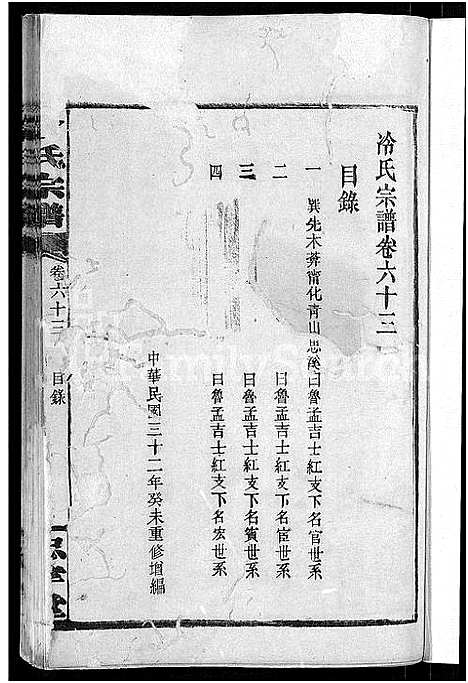 冷氏宗譜卷六十三
目錄
一 巽先木莽甯化青山思溪曰魯孟吉士紅支下名官世系
二 曰魯孟吉士紅支下名宦世系
三 曰魯孟吉士紅支下名賓世系
四 曰魯孟吉士紅支下名宏世系
中華民國三十二年癸未重修增編
氏宗譜
卷六十三
目錄